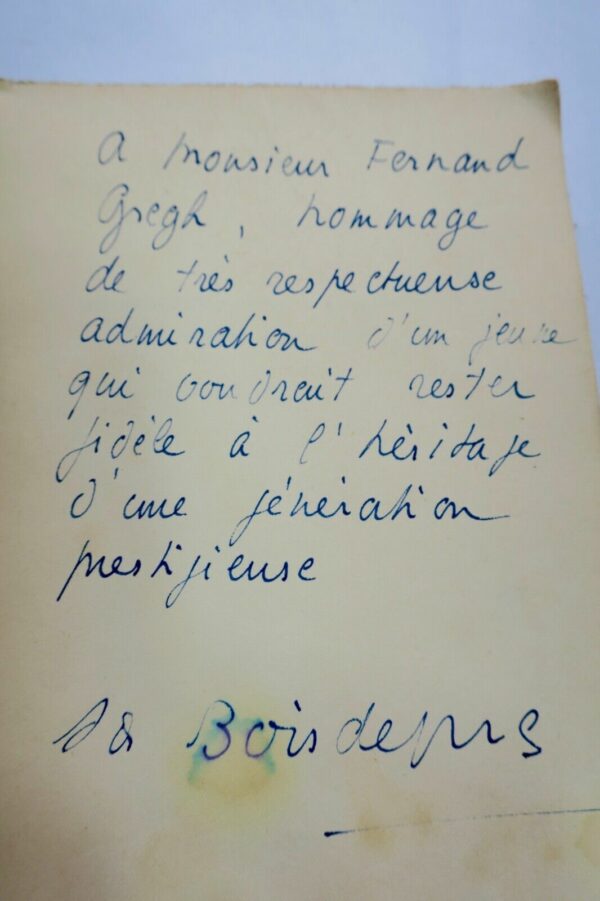 A Monsieur Fernand
Gregh, hommage
de très respectueuse
admiration d'un jeune
qui voudrait rester
fidèle à l'héritage
d'une génération
prestigieuse
Boisdeprg